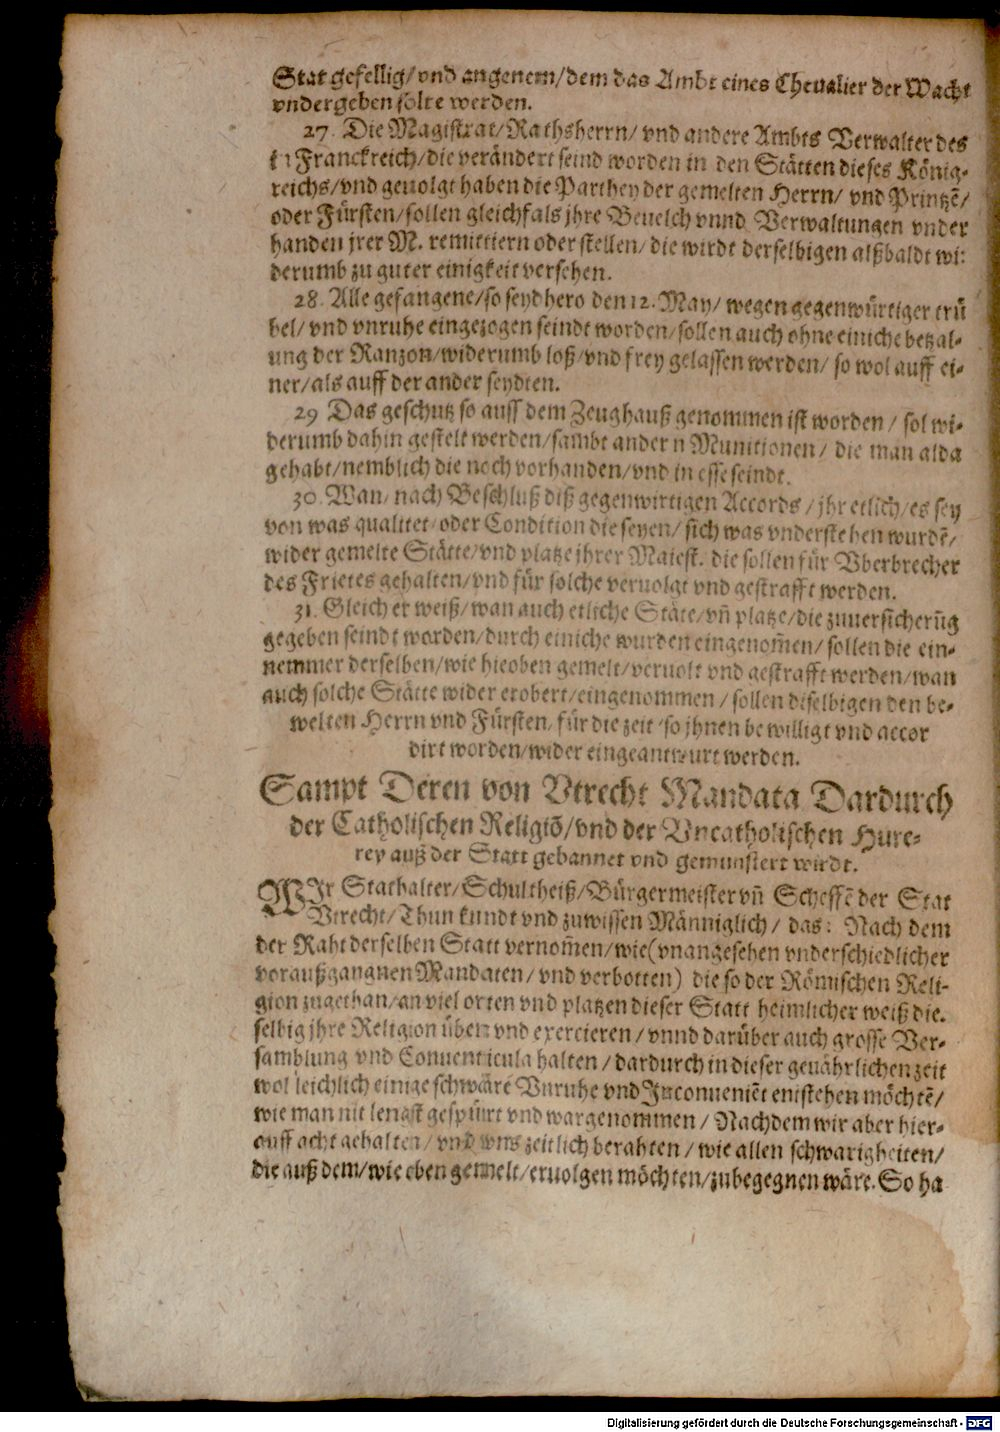 Stat gefellig/ vnd angenem/ dem das Ambt eines Cheualier der Wacht
vndergeben solte werden.
27. Die Magistrat/ Rathsherrn/ vnd andere Ambts Verwalter des
Franckreich/ die verändert seind worden in den Stätten dieses König-
reichs/ vnd geuolgt haben die Parthey der gemelten Herrn/ vnd Printzẽ/
oder Fürsten/ sollen gleichfals jhre Beuelch vnnd Verwaltungen vnder
handen jrer M. remittiern oder stellen/ die wirdt derselbigen alßbaldt wi:
derumb zu guter einigkeit versehen.
28. Alle gefangene/ so seydhero den 12. May/ wegen gegenwürtiger trü
bel/ vnd vnruhe eingezogen seindt worden/ sollen auch ohne einiche betzal-
ung der Ranzon/ widerumb loß/ vnd frey gelassen werden/ so wol auff ei-
ner/ als auff der ander seydten.
29 Das geschutz so auss dem Zeughauß genommen ist worden / sol wi-
derumb dahin gestelt werden/ sambt andern Munitionen/ die man alda
gehabt/ nemblich die noch vorhanden/ vnd in esse seindt.
30. Wan/ nach Beschluß diß gegenwirtigen Accords / jhr etlich/ es sey
von was qualitet/ oder Condition die seyen/ sich was vnderstehen wurdẽ/
wider gemelte Stätte/ vnd platze jhrer Maiest. die sollen für Vberbrecher
des Frietes gehalten/ vnd für solche veruolgt vnd gestrafft werden.
31. Gleicher weiß/ wan auch etliche Stäte/ vñ platze/ die zuuersicherũg
gegeben seindt worden/ durch einiche wurden eingenom̃en/ sollen die ein-
nemmer derselben/ wie hieoben gemelt/ veruolt vnd gestrafft werden/ wan
auch solche Stätte wider erobert/ eingenommen / sollen diselbigen den be-
welten Herrn vnd Fürsten/ für die zeit so jhnen bewilligt vnd accor
dirt worden/ wider eingeantwurt werden.
Sampt Deren von Vtrecht Mandata Dardurch
der Catholischen Religiõ/ vnd der Vncatholischen Hure-
rey auß der Statt gebannet vnd gemunstert wirdt.
WIr Stathalter/ Schultheiß/ Bürgermeister vñ Scheffẽ der Stat
Vtrecht/ Thun kundt vnd zuwissen Männiglich/ das: Nach dem
der Raht derselben Statt vernom̃en/ wie (vnangesehen vnderschiedlicher
voraußgangnen Mandaten/ vnd verbotten) die so der Römischen Reli-
gion zugethan/ an viel orten vnd platzen dieser Statt heimlicher weiß die-
selbig jhre Religion üben vnd exercieren/ vnnd darüber auch grosse Ver-
samblung vnd Conuenticula halten / dardurch in dieser geuährlichen zeit
wol leichlich einige schwäre Vnruhe vnd Inconueniẽt entstehen möchtẽ/
wie man nit lengst gespürt vnd wargenommen / Nachdem wir aber hier-
auff acht gehalten/ vnd vns zeitlich berahten/ wie allen schwarigheiten/
die auß dem/ wie eben gemelt/ eruolgen möchten/ zubegegnen wäre. So ha
Digitalisierung gefördert durch die Deutsche Forschungsgemeinschaft - DFG